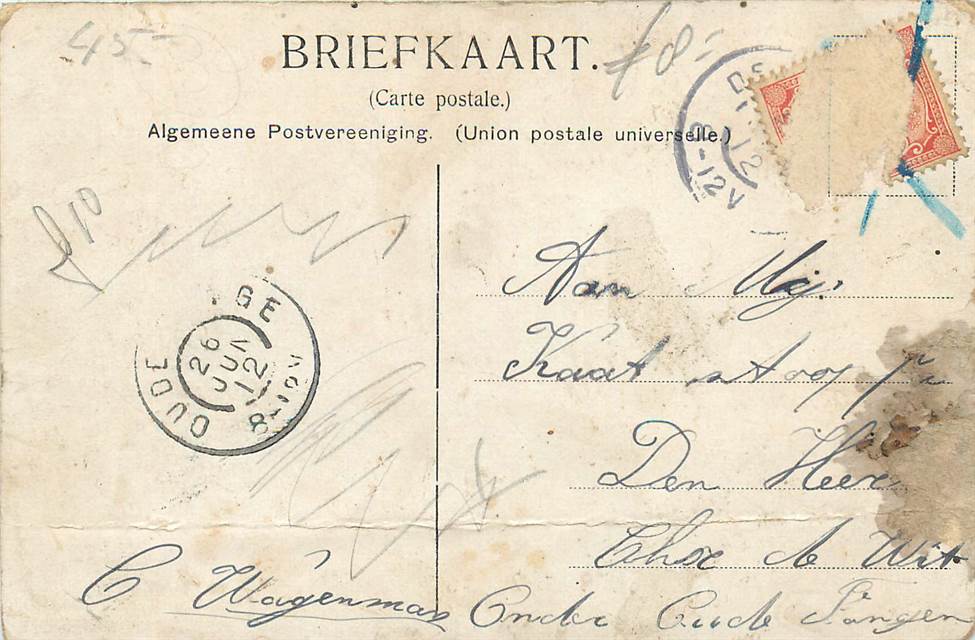 45-
BRIEFKAART.
(Carte postale.)
Algemeene Postvereeniging. (Union postale universelle.)
8-12V
12
f10
GE
26 JUN 12
8-12V
OUDE
Aan Mej.
Kaat
Den Heer
de Wit
C Wagenman Onder Oude Tongen